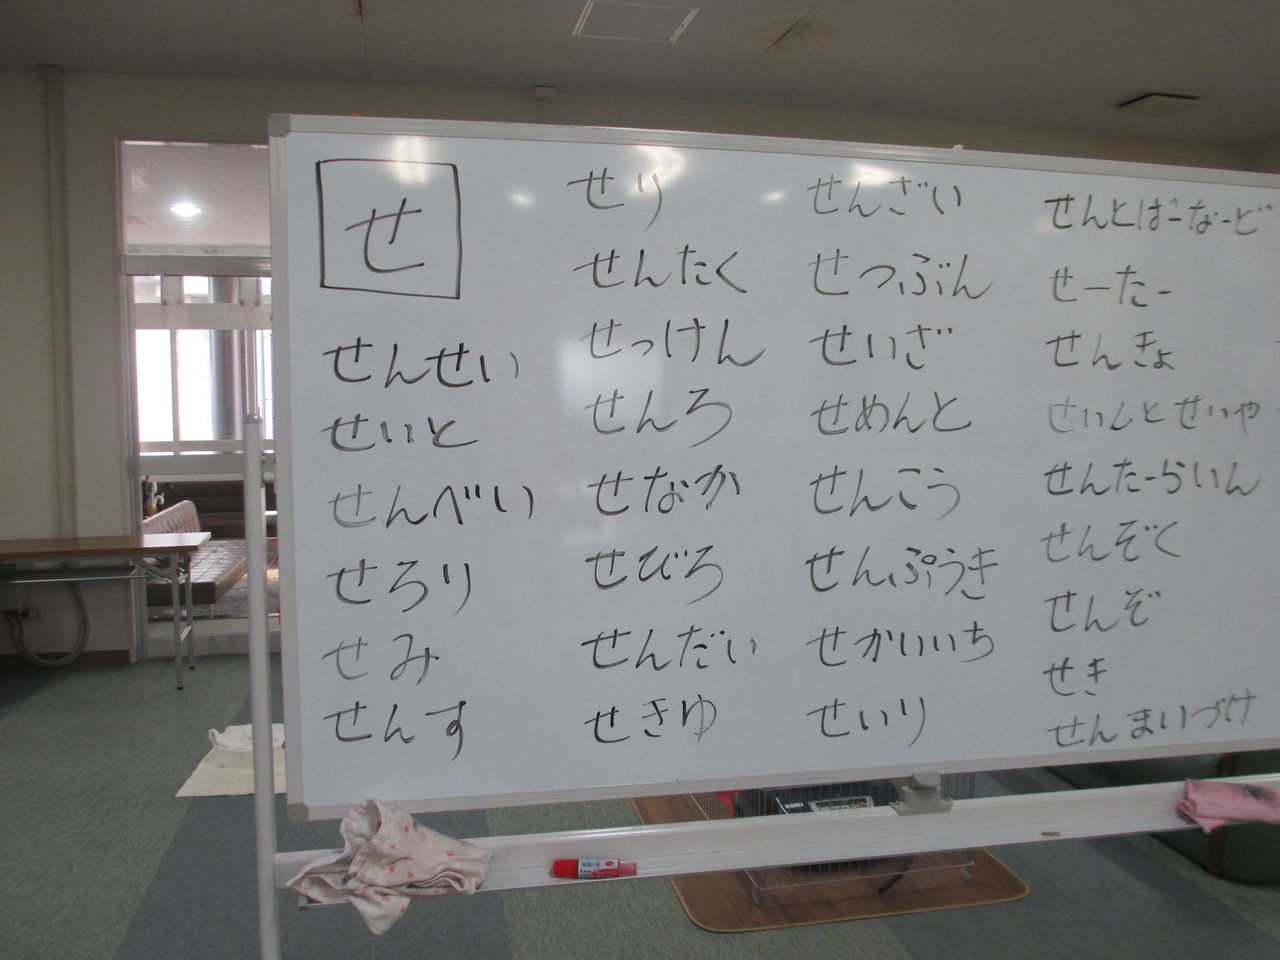 せ
せんせい
せいと
せんべい
せろり
せみ
せんす
せり
せんたく
せっけん
せんろ
せなか
せびろ
せんだい
せきゆ
せんざい
せつぶん
せいざ
せめんと
せんこう
せんぷうき
せかいいち
せいり
せんとばーなーど
せーたー
せんきょ
せいんとせいや
せんたーらいん
せんぞく
せんぞ
せき
せんまいづけ